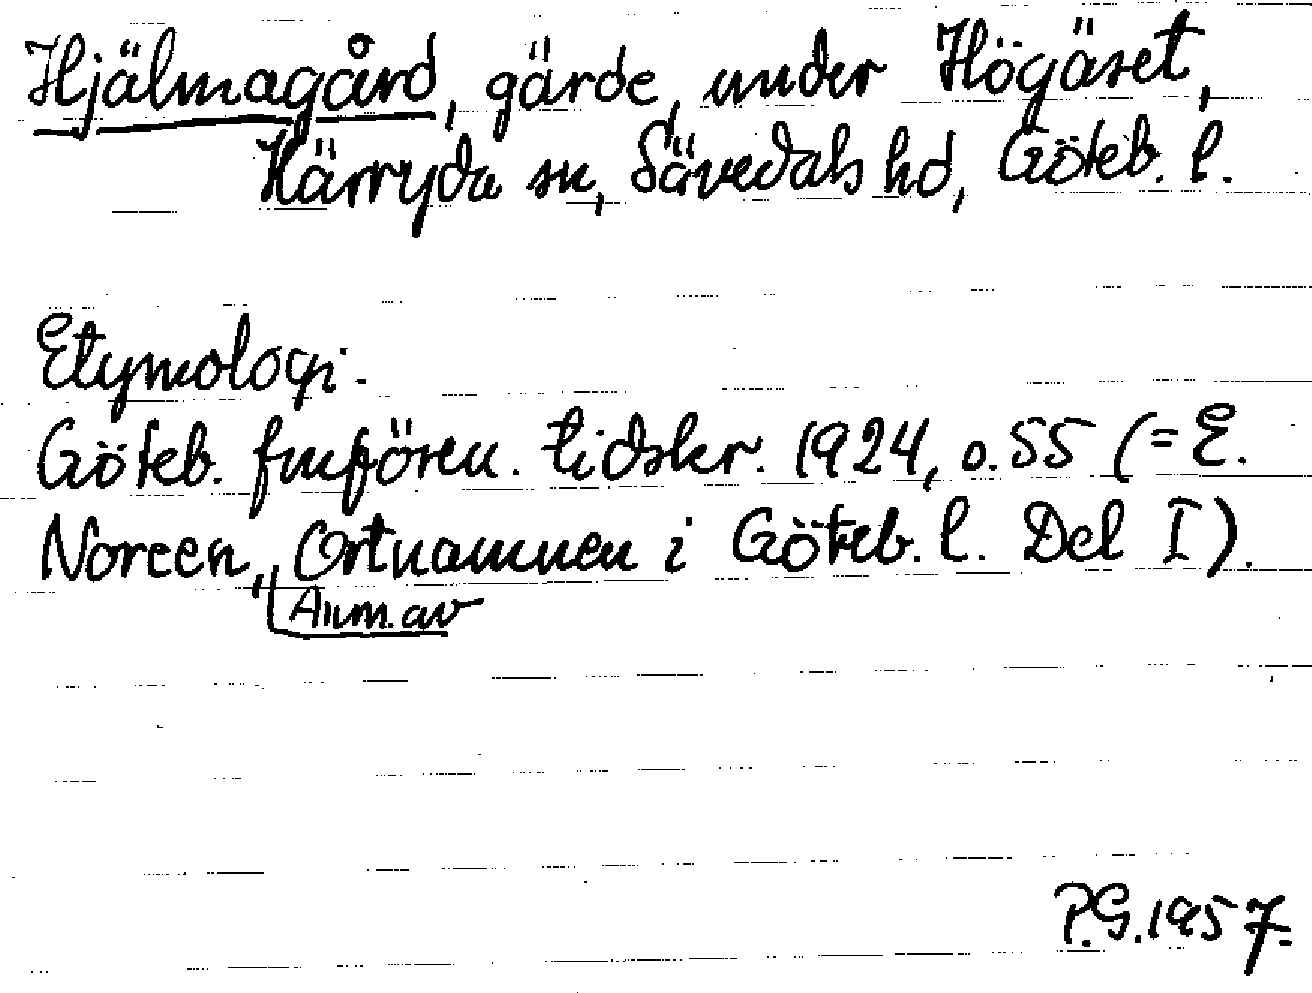 Hjälmagård, gärde, under Högäset,
Härryda sn, Sävedals hd, Göteb. l.
Etymologi.
Göteb. fmfören. tidskr. 1924, s. 55 (= E.
Noreen, Ortnamnen i Göteb. l. Del I).
Anm. av
P.G. 1957.